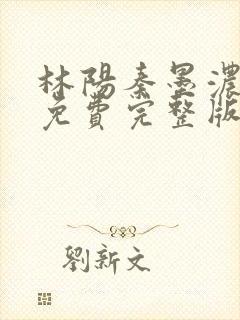 林陽秦墨濃
免費完整版
劉新文